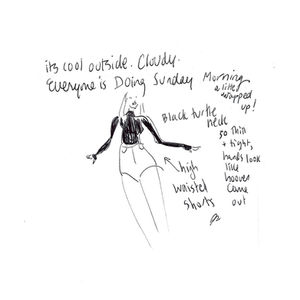 its cool outside. Cloudy.
Everyone is Doing Sunday
Morning
a little
wrapped
up!
Black turtle
neck
so thin
+ tight,
hands look
like
hooves
Come
out
high
waisted
shorts